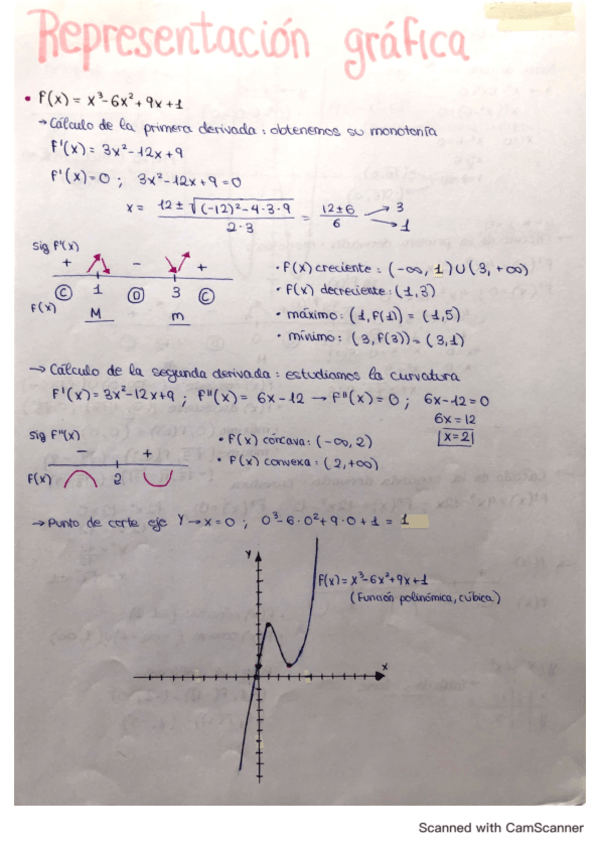 Representación gráfica
• F(x) = x³-6x²+9x+1
→ Cálculo de la primera derivada: obtenemos su monotonía
F'(x) = 3x²-12x+9
F'(x)=0 ; 3x²-12x+9=0
x = 12 ± √(-12)²-4·3·9 / 2·3 = 12±6 / 6 → 3 → 1
Sig F'(x)
+ - +
C 1 D 3 C
F(x) M m
• F(x) creciente: (-∞, 1)∪(3, +∞)
• F(x) decreciente: (1,3)
• máximo: (1, F(1)) = (1,5)
• mínimo: (3, F(3)) = (3,1)
→ Cálculo de la segunda derivada: estudiamos la curvatura
F'(x)=3x²-12x+9 ; F''(x) = 6x-12 → F''(x)=0 ; 6x-12=0
6x=12
x=2
Sig F''(x)
- +
F(x) 2
• F(x) córcava: (-∞, 2)
• F(x) convexa: (2, +∞)
→ Punto de corte eje Y → x=0 ; 0³-6·0²+9·0+1 = 1
Y
F(x)=x³-6x²+9x+1
(Función polinómica, cúbica)
x
Scanned with CamScanner